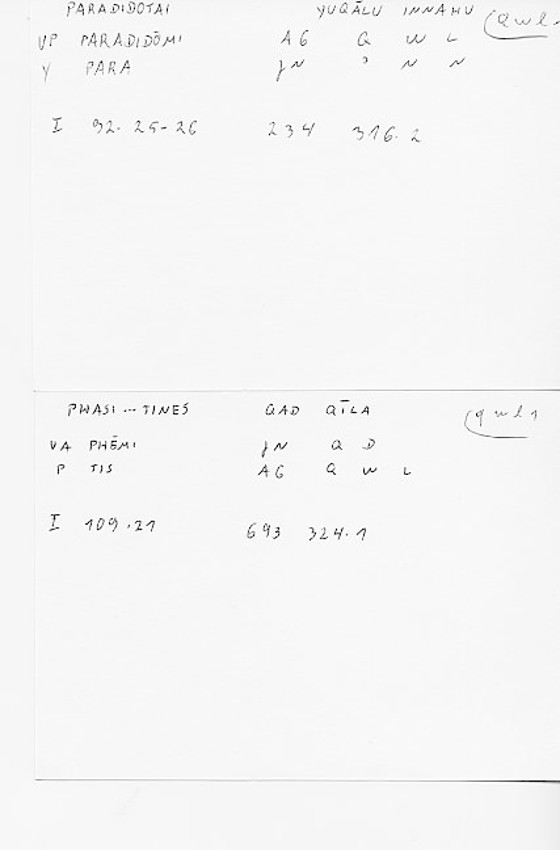 PARADIDOTAI YUQĀLU INNAHU (qwl
VP PARADIDŌMI AG Q W L
Y PARA JN ʾ N N
I 92. 25-26 234 316. 2
PHASI ... TINES QAD QĪLA (qwl 1
VA PHĒMI JN Q D
P TIS AG Q W L
I 109.21 693 324.1